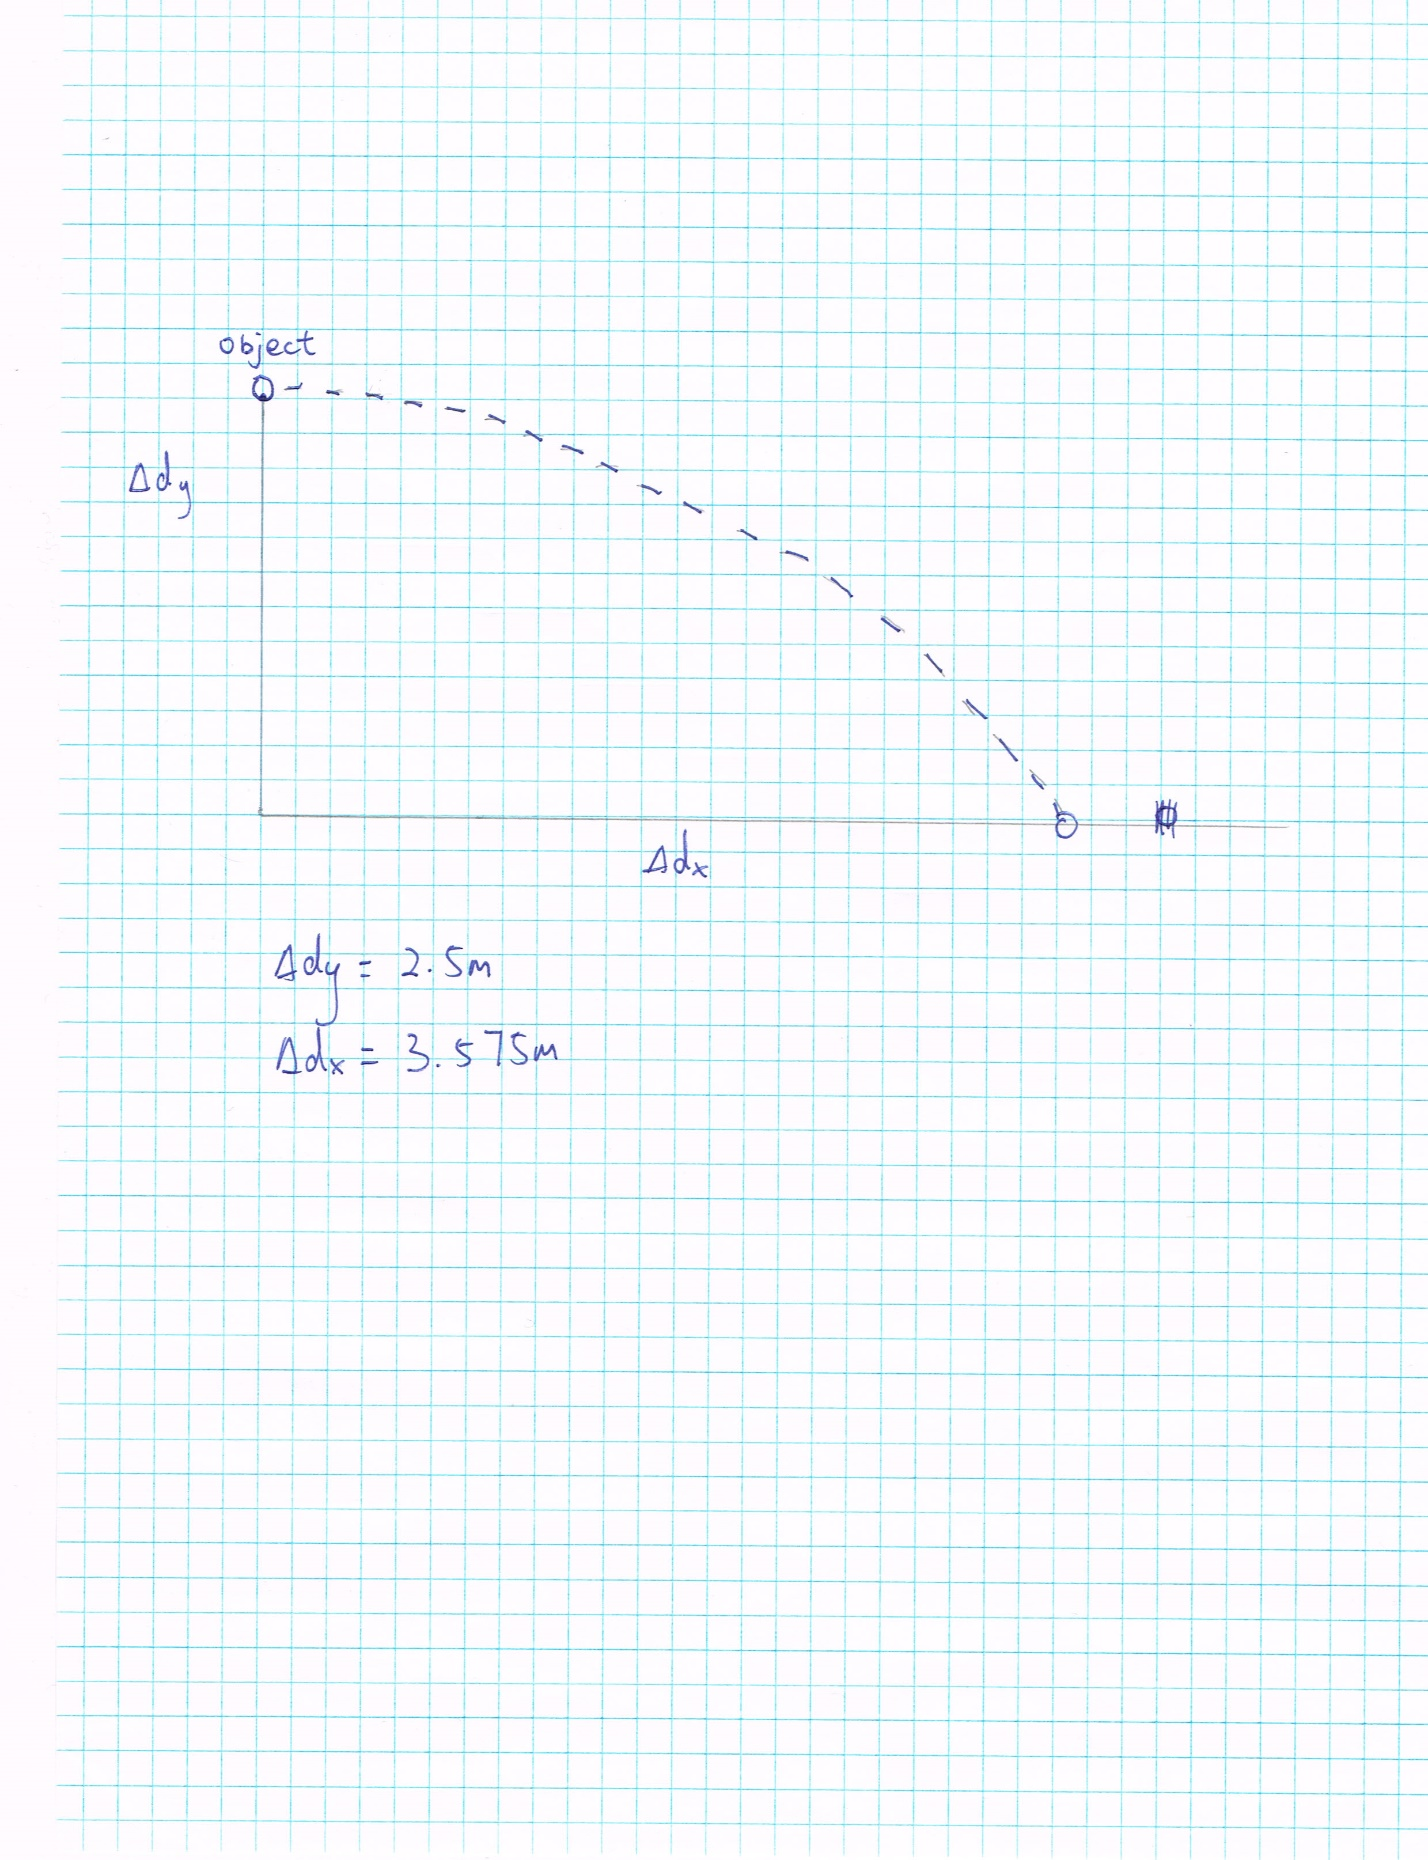 object
Δdy
Δdx
Δdy = 2.5m
Δdx = 3.575m